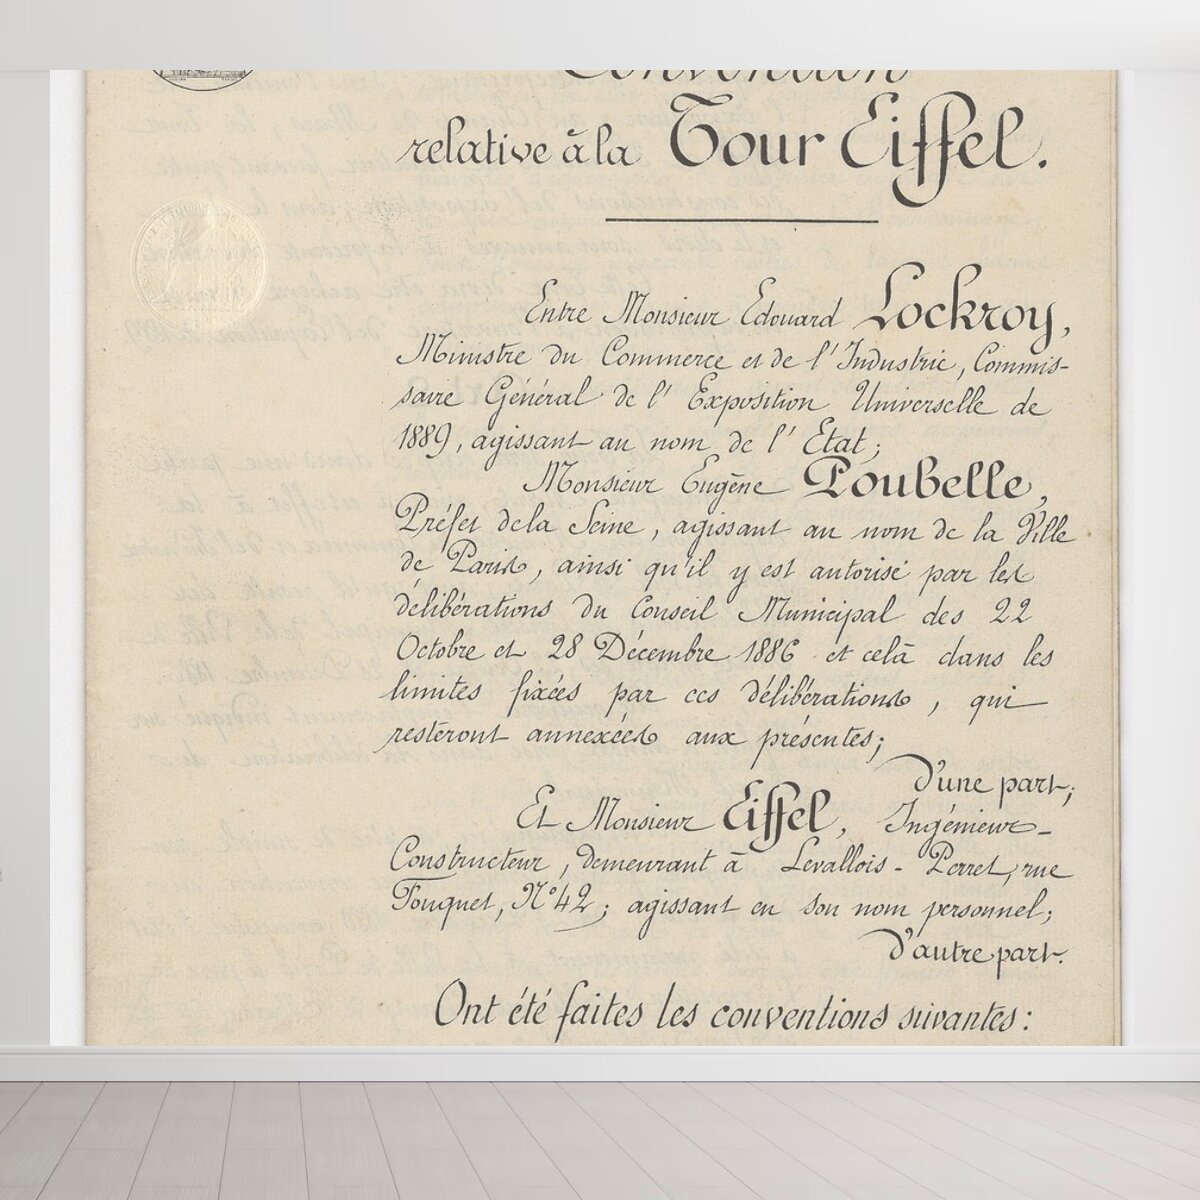 Convention
relative à la Tour Eiffel.
Entre Monsieur Edouard Lockroy,
Ministre du Commerce et de l'Industrie, Commis-
saire Général de l'Exposition Universelle de
1889, agissant au nom de l'Etat;
Monsieur Eugène Poubelle,
Préfet de la Seine, agissant au nom de la Ville
de Paris, ainsi qu'il y est autorisé par les
délibérations du Conseil Municipal des 22
Octobre et 28 Décembre 1886 et celà dans les
limites fixées par ces délibérations, qui
resteront annexées aux présentes;
d'une part;
Et Monsieur Eiffel, Ingénieur-
Constructeur, demeurant à Levallois-Perret, rue
Fouquet, N° 42; agissant en son nom personnel;
d'autre part.
Ont été faites les conventions suivantes: